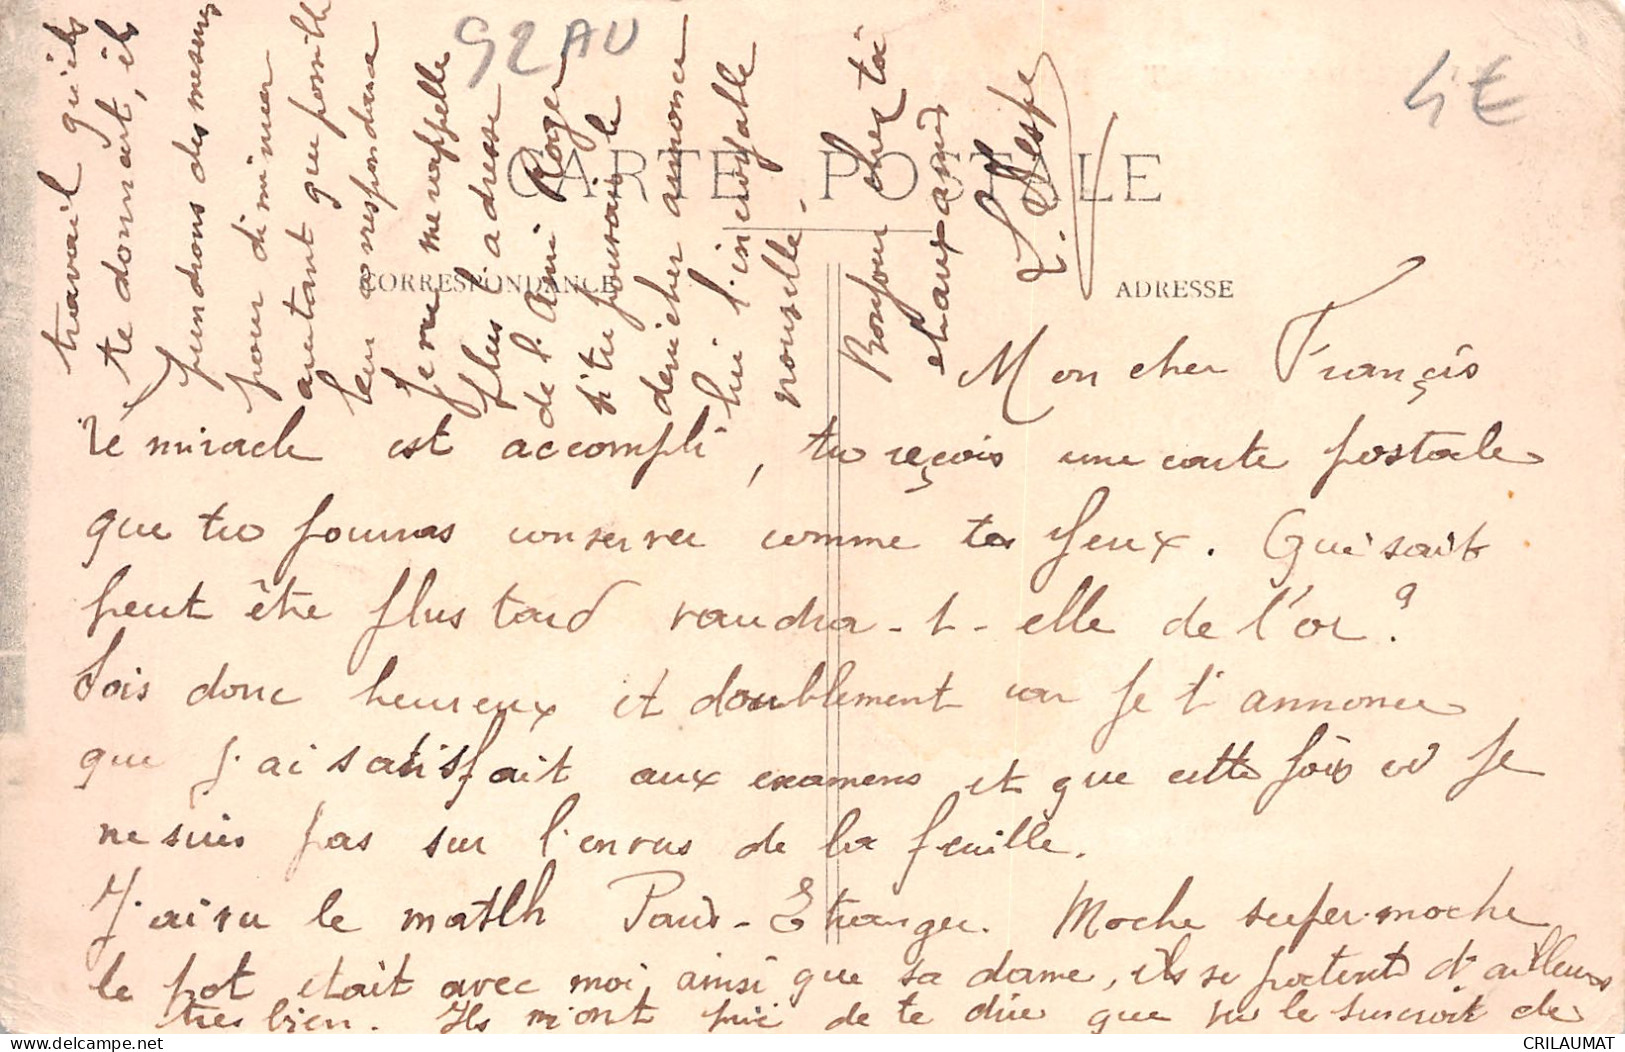 92AU
4€
CARTE POSTALE
CORRESPONDANCE
ADRESSE
Mon cher Françis
Le miracle est accompli, tu reçois une carte postale
que tu pourras conserver comme tes yeux. Qui sait
peut être plus tard vaudra-t-elle de l'or ?
Sois donc heureux et doublement car je t'annonce
que j'ai satisfait aux examens et que cette fois ci je
ne suis pas sur l'envers de la feuille.
J'ai vu le match Paris-Etranger. Moche super-moche
le pot était avec moi, ainsi que sa dame, ils se portent d'ailleurs
très bien. Ils m'ont prié de te dire que vu le surcroit de
travail qu'ils
te donnent, ils
prendrons des mesures
pour diminuer
autant que possible
leur correspondance
Je ne me rappelle
plus l'adresse
de l'Ami Roger
si tu pouvais le
dénicher annonce
lui l'incroyable
nouvelle.
Bonjour chez toi
et aux amis
CRILAUMAT